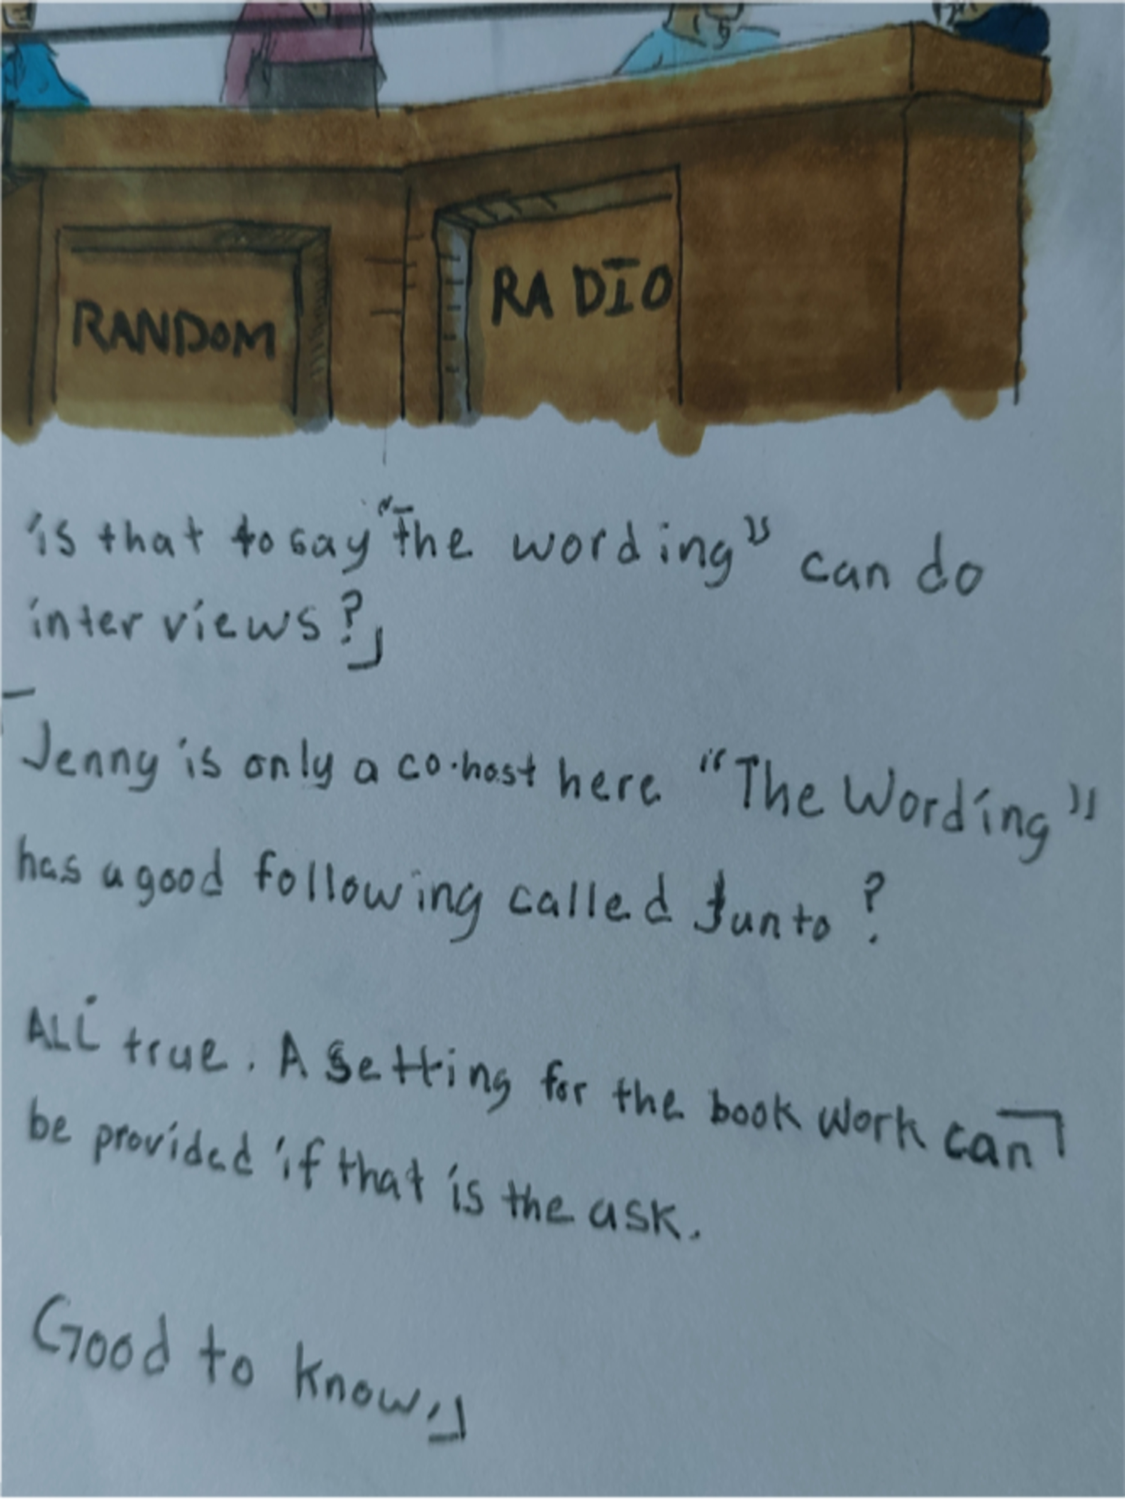 RANDOM
RADIO
is that to say "The wording" can do
interviews?」
「Jenny is only a co-host here "The Wording"
has a good following called Junto?
ALL true. A setting for the book work can
be provided if that is the ask.
Good to know.」